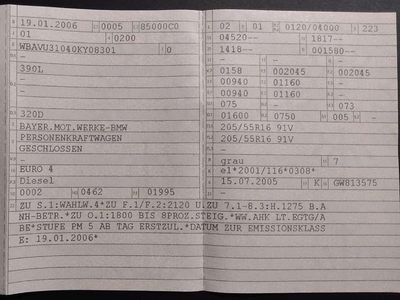 19.01.2006 0005 85000C0
01 0200
WBAVU31040KY08301 0
-
390L
-
-
320D
BAYER.MOT.WERKE-BMW
PERSONENKRAFTWAGEN
GESCHLOSSEN
-
EURO 4
Diesel
0002 0462 01995
02 01 0120/04000 223
04520-- 1817--
1418-- 001580--
- - -
0158 002045 002045
00940 01160 -
00940 01160 -
075 - 073
01600 0750 005 -
205/55R16 91V
205/55R16 91V
-
grau 7
e1*2001/116*0308*
15.07.2005 K GW813575
ZU S.1:WAHLW.4*ZU F.1/F.2:2120 U.ZU 7.1-8.3:H.1275 B.A
NH-BETR.*ZU O.1:1800 BIS 8PROZ.STEIG.*WW.AHK LT.EGTG/A
BE*STUFE PM 5 AB TAG ERSTZUL.*DATUM ZUR EMISSIONSKLASS
E: 19.01.2006*